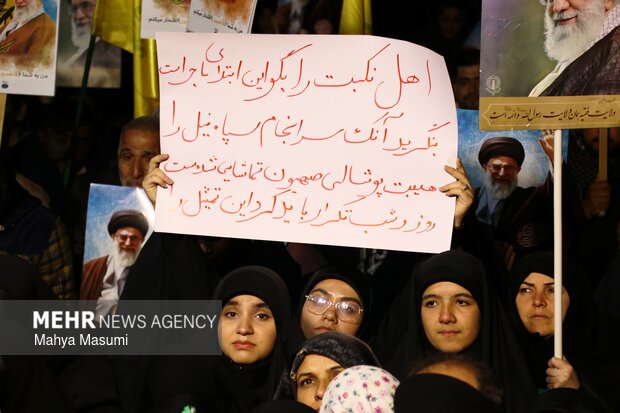 اهل نکبت را بگو این ابتدای ماجراست
بنگرید آنک سرانجام سپاه نیل را
هیبت پوشالی صهیون تماشایی شده ست
روز و شب تکرار باید کرد این تمثیل را
MEHR NEWS AGENCY
Mahya Masumi